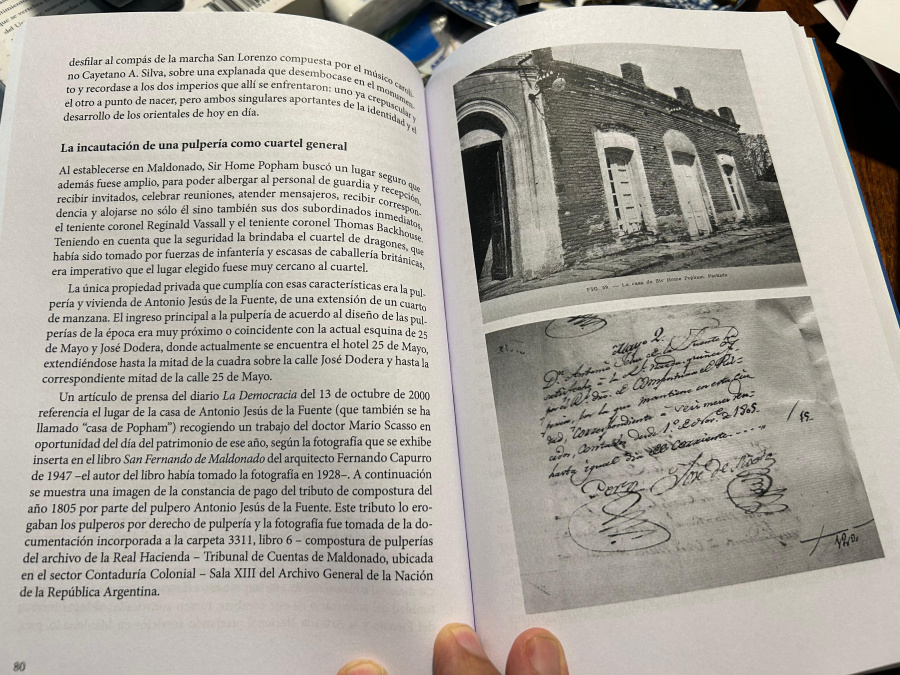 desfilar al compás de la marcha San Lorenzo compuesta por el músico caroli-
no Cayetano A. Silva, sobre una explanada que desembocase en el monumen-
to y recordase a los dos imperios que allí se enfrentaron: uno ya crepuscular y
el otro a punto de nacer, pero ambos singulares aportantes de la identidad y el
desarrollo de los orientales de hoy en día.
La incautación de una pulpería como cuartel general
Al establecerse en Maldonado, Sir Home Popham buscó un lugar seguro que
además fuese amplio, para poder albergar al personal de guardia y recepción,
recibir invitados, celebrar reuniones, atender mensajeros, recibir correspon-
dencia y alojarse no sólo él sino también sus dos subordinados inmediatos,
el teniente coronel Reginald Vassall y el teniente coronel Thomas Backhouse.
Teniendo en cuenta que la seguridad la brindaba el cuartel de dragones, que
había sido tomado por fuerzas de infantería y escasas de caballería británicas,
era imperativo que el lugar elegido fuese muy cercano al cuartel.
La única propiedad privada que cumplía con esas características era la pul-
pería y vivienda de Antonio Jesús de la Fuente, de una extensión de un cuarto
de manzana. El ingreso principal a la pulpería de acuerdo al diseño de las pul-
perías de la época era muy próximo o coincidente con la actual esquina de 25
de Mayo y José Dodera, donde actualmente se encuentra el hotel 25 de Mayo,
extendiéndose hasta la mitad de la cuadra sobre la calle José Dodera y hasta la
correspondiente mitad de la calle 25 de Mayo.
Un artículo de prensa del diario La Democracia del 13 de octubre de 2000
referencia el lugar de la casa de Antonio Jesús de la Fuente (que también se ha
llamado “casa de Popham”) recogiendo un trabajo del doctor Mario Scasso en
oportunidad del día del patrimonio de ese año, según la fotografía que se exhibe
inserta en el libro San Fernando de Maldonado del arquitecto Fernando Capurro
de 1947 –el autor del libro había tomado la fotografía en 1928–. A continuación
se muestra una imagen de la constancia de pago del tributo de compostura del
año 1805 por parte del pulpero Antonio Jesús de la Fuente. Este tributo lo ero-
gaban los pulperos por derecho de pulpería y la fotografía fue tomada de la do-
cumentación incorporada a la carpeta 3311, libro 6 – compostura de pulperías
del archivo de la Real Hacienda – Tribunal de Cuentas de Maldonado, ubicada
en el sector Contaduría Colonial – Sala XIII del Archivo General de la Nación
de la República Argentina.
80
— La casa de Sir Home Popham. Fachada
Mayo 2
Dn. Antonio de la Fuente
por la que mantiene en esta Ciu-
dad, correspondiente a seis meses
contados desde 1º de Nov.e de 1805
hasta igual día del corriente
15